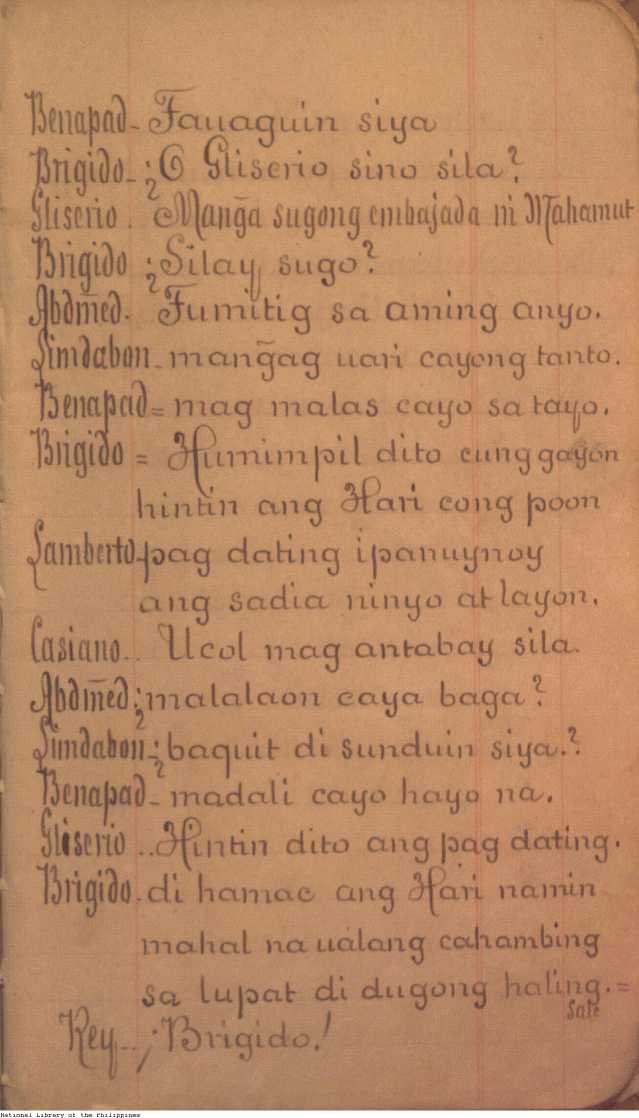 Benapad- Tauaguin siya
Brigido- ¿O Gliserio sino sila?
Gliserio. Mang̃a sugong embajada ni Mahamut
Brigido ¿Silay sugo?
Abdm̃ed. Tumitig sa aming anyo.
Limdabon- mang̃ag uari cayong tanto.
Benapad= mag malas cayo sa tayo.
Brigido = Humimpil dito cung gayon
hintin ang Hari cong poon
Lamberto-pag dating ipanuynoy
ang sadia ninyo at layon.
Casiano.. Ucol mag antabay sila.
Abdm̃ed ¿malalaon caya baga?
Lundabon-¿baquit di sunduin siya.?
Benapad- madali cayo hayo na.
Gliserio ..Hintin dito ang pag dating.
Brigido. di hamac ang Hari namin
mahal na ualang cahambing
sa lupat di dugong haling.=
Sale
Rey.. ¡Brigido!
National Library of the Philippines